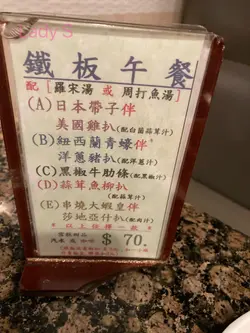 鐵板午餐
配[羅宋湯 或 周打魚湯]
(A)日本帶子伴
美國雞扒(配白菌蒜茸汁)
(B)紐西蘭青蠔伴
洋蔥豬扒(配洋蔥汁)
(C)黑椒牛肋條(配黑椒汁)
(D)蒜茸魚柳扒
(E)串燒大蝦皇伴
莎地亞什扒(配肉汁)
以上任擇一款
汽水 或 咖啡
$ 70.